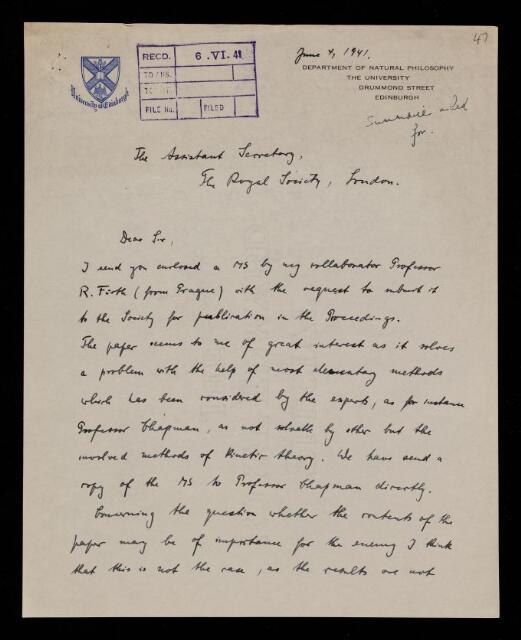 47
June 4, 1941.
RECD. 6. VI. 41
DEPARTMENT OF NATURAL PHILOSOPHY
THE UNIVERSITY
TO / MS.
DRUMMOND STREET
EDINBURGH
FILE No. FILED
University of Edinburgh
for.
The Assistant Secretary,
The Royal Society, London.
Dear Sir,
I send you enclosed a MS by my collaborator Professor
R. Fürth (from Prague) with the request to submit it
to the Society for publication in the Proceedings.
The paper seems to me of great interest as it solves
a problem with the help of most elementary methods
which has been considered by the experts, as for instance
Professor Chapman, as not solvable by other but the
involved methods of kinetic theory. We have send a
copy of the MS to Professor Chapman directly.
Concerning the question whether the contents of the
paper may be of importance for the enemy I think
that this is not the case, as the results are not